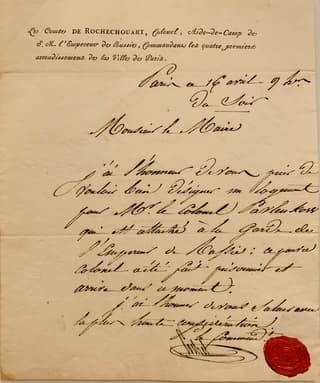 Le Comte DE ROCHECHOUART, Colonel, Aide-de-Camp de
S. M. l'Empereur de Russie, Commandant les quatre premiers
arrondissemens de la Ville de Paris.
Paris ce 16 avril - 9 h
du Soir
Monsieur le Maire
j'ai l'honneur de vous prier de
vouloir bien désigner un logement
pour Mr. le Colonel
qui est attaché à la Garde de
l'Empereur de Russie : ce
colonel a été fait prisonnier et
arrive dans ce moment.
j'ai l'honneur de vous saluer avec
la plus haute considération